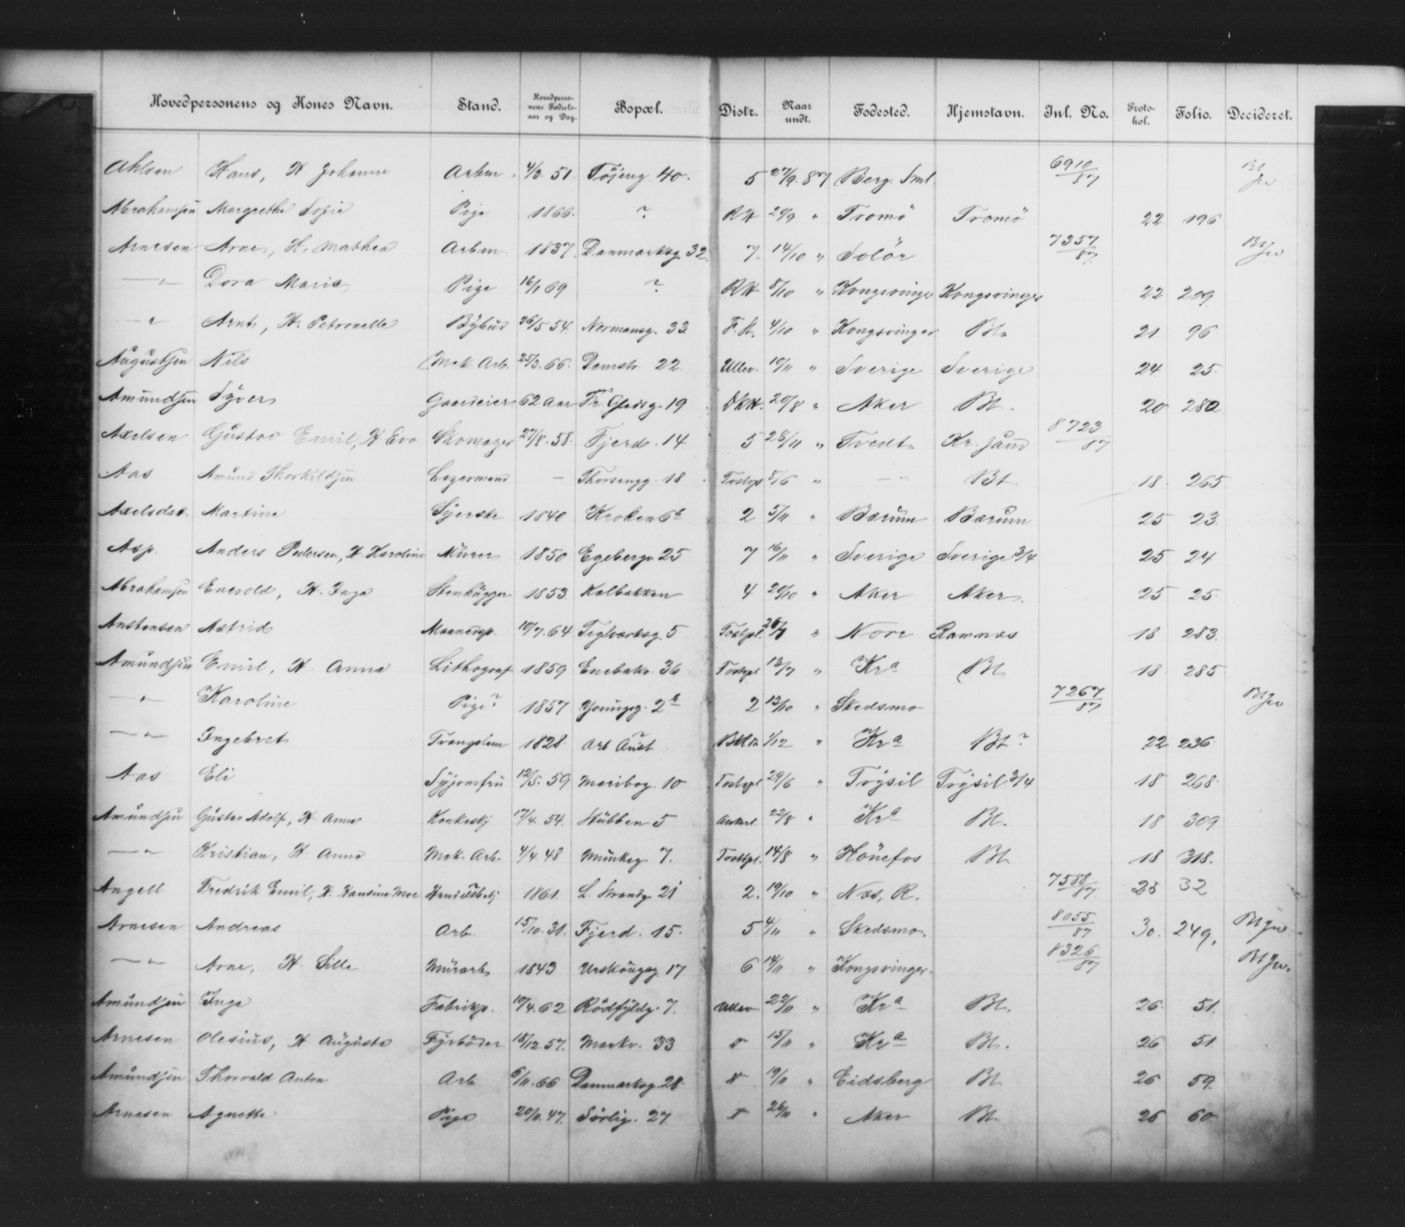 Hovedpersonens og Kones Navn. Stand. Hovedperso-nens Fødsels-aar og Dag. Bopæl. Distr. Naar undt. Fødested. Hjemstavn. Inl. No. Proto-kol. Folio. Decideret.
Ahlsen Hans, H Johanne Arbm. 4/3. 51. Töjeng. 40. 5 27/9. 87 Berg. Sml. 6910/87
Abrahamsen Margrethe Sofie Pige 1866. ? RH 29/9 " Tromö Tromö 22 196
Arnesen Arne, H. Mathea Arbm. 1837. Danmarksg. 32. 7. 14/10 " Solör 7357/87
—"— Dora Marie Pige 16/1 69 ? RH 8/10 " Kongsvinger Kongsvinger 22 209
—"— Arnt, H. Petronelle Bÿbud 26/5 54. Normansg. 33 4/10 " Kongsvinger Bl. 21 96
Augustsen Nils Mek. Arb. 25/3. 66. Damstr. 22. Ullev. 10/11 " Sverige Sverige 24 25.
Amundsen Syver Gaardeier 62 Aar 19 20/8 " Aker Bl. 20 280
Axelsen Gustav Emil, H Eva Skomager 27/8. 58. Fjerd. 14 5 28/11 " Tvedt. Kr. sand 8723/87
Aas Amund Thorkildsen Lagermand — Thorsengg. 18 5/6 " —"— Bl. 18 265
Axelsdat. Martine Syerske 1840 Kroken 6b 2 5/11 " Bærum Bærum 25 23.
Asp. Anders Pedersen, H Karoline Murer 1850 Egebergv 25 7 16/11 " Sverige Sverige 3/4 25 24
Abrahamsen Enevold, H. Inga Stenhugger 1853 Kalbakken 4 20/10 " Aker Aker. 25 25.
Anstensen Astrid 19/7. 64 Teglverksg. 5 26/7 " Nore Ramnæs 18 283.
Amundsen Emil, H. Anna Lithograf 1859 Enebakv. 36 13/7 " Kra Bl. 18. 285
—"— Karoline Pige? 1857 Youngsg. 2b 2 13/10 " Skedsmo 7267/87
—"— Ingebret 1828. Arb Anst 1/12 " Kra Bl.? 22 236
Aas Eli Syjomfru 12/5. 59 Maribog. 10 29/6 " Trÿsil Trÿsil 3/4 18 268.
Amundsen Gustav Adolf, H Anna 17/4. 54. Hubben 5 22/8 " Kra Bl. 18 309
—"— Kristian, H Anna Mek. Arb. 4/4. 48 Munkeg. 7. 14/8 " Hönefos Bl. 18 318.
Angell Fredrik Emil, H. Hansine Mar 1861. L. Strandg. 21 2. 19/10 " Næs, R. 7588/87 23 32
Arnesen Andreas Arb. 15/10. 31. Fjerd. 15. 5 4/11 " Skedsmo. 8055/87 30. 249.
—"— Arne, H. Sille Murarb. 1843 17 6 14/11 " Kongsvinger. 8326/87
Amundsen Inga Fabrikp. 19/4. 62 Rödfyldg. 7. Ullev. 22/11 " Kra Bl. 26. 51.
Arnesen Olesius, H Augusta Fyrböder 18/12. 57. Markv. 33 " 15/11 " Kra Bl. 26 51
Amundsen Thorvald Anton Arb. 6/11. 66 Danmarksg. 28. " 19/11 " Eidsberg Bl. 26 59.
Arnesen Agnette Pige 20/11. 47. Sörlig. 27. " 26/11 " Aker Bl. 26 60.